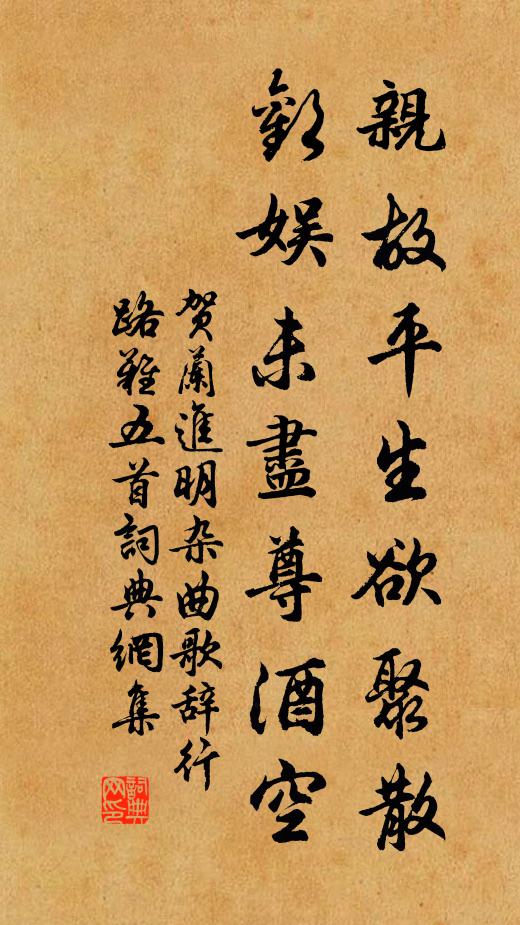 親故平生欲聚散
歡娛未盡尊酒空
贺蘭進明杂曲歌辞行
路難五首詞典網集
詞典
网印